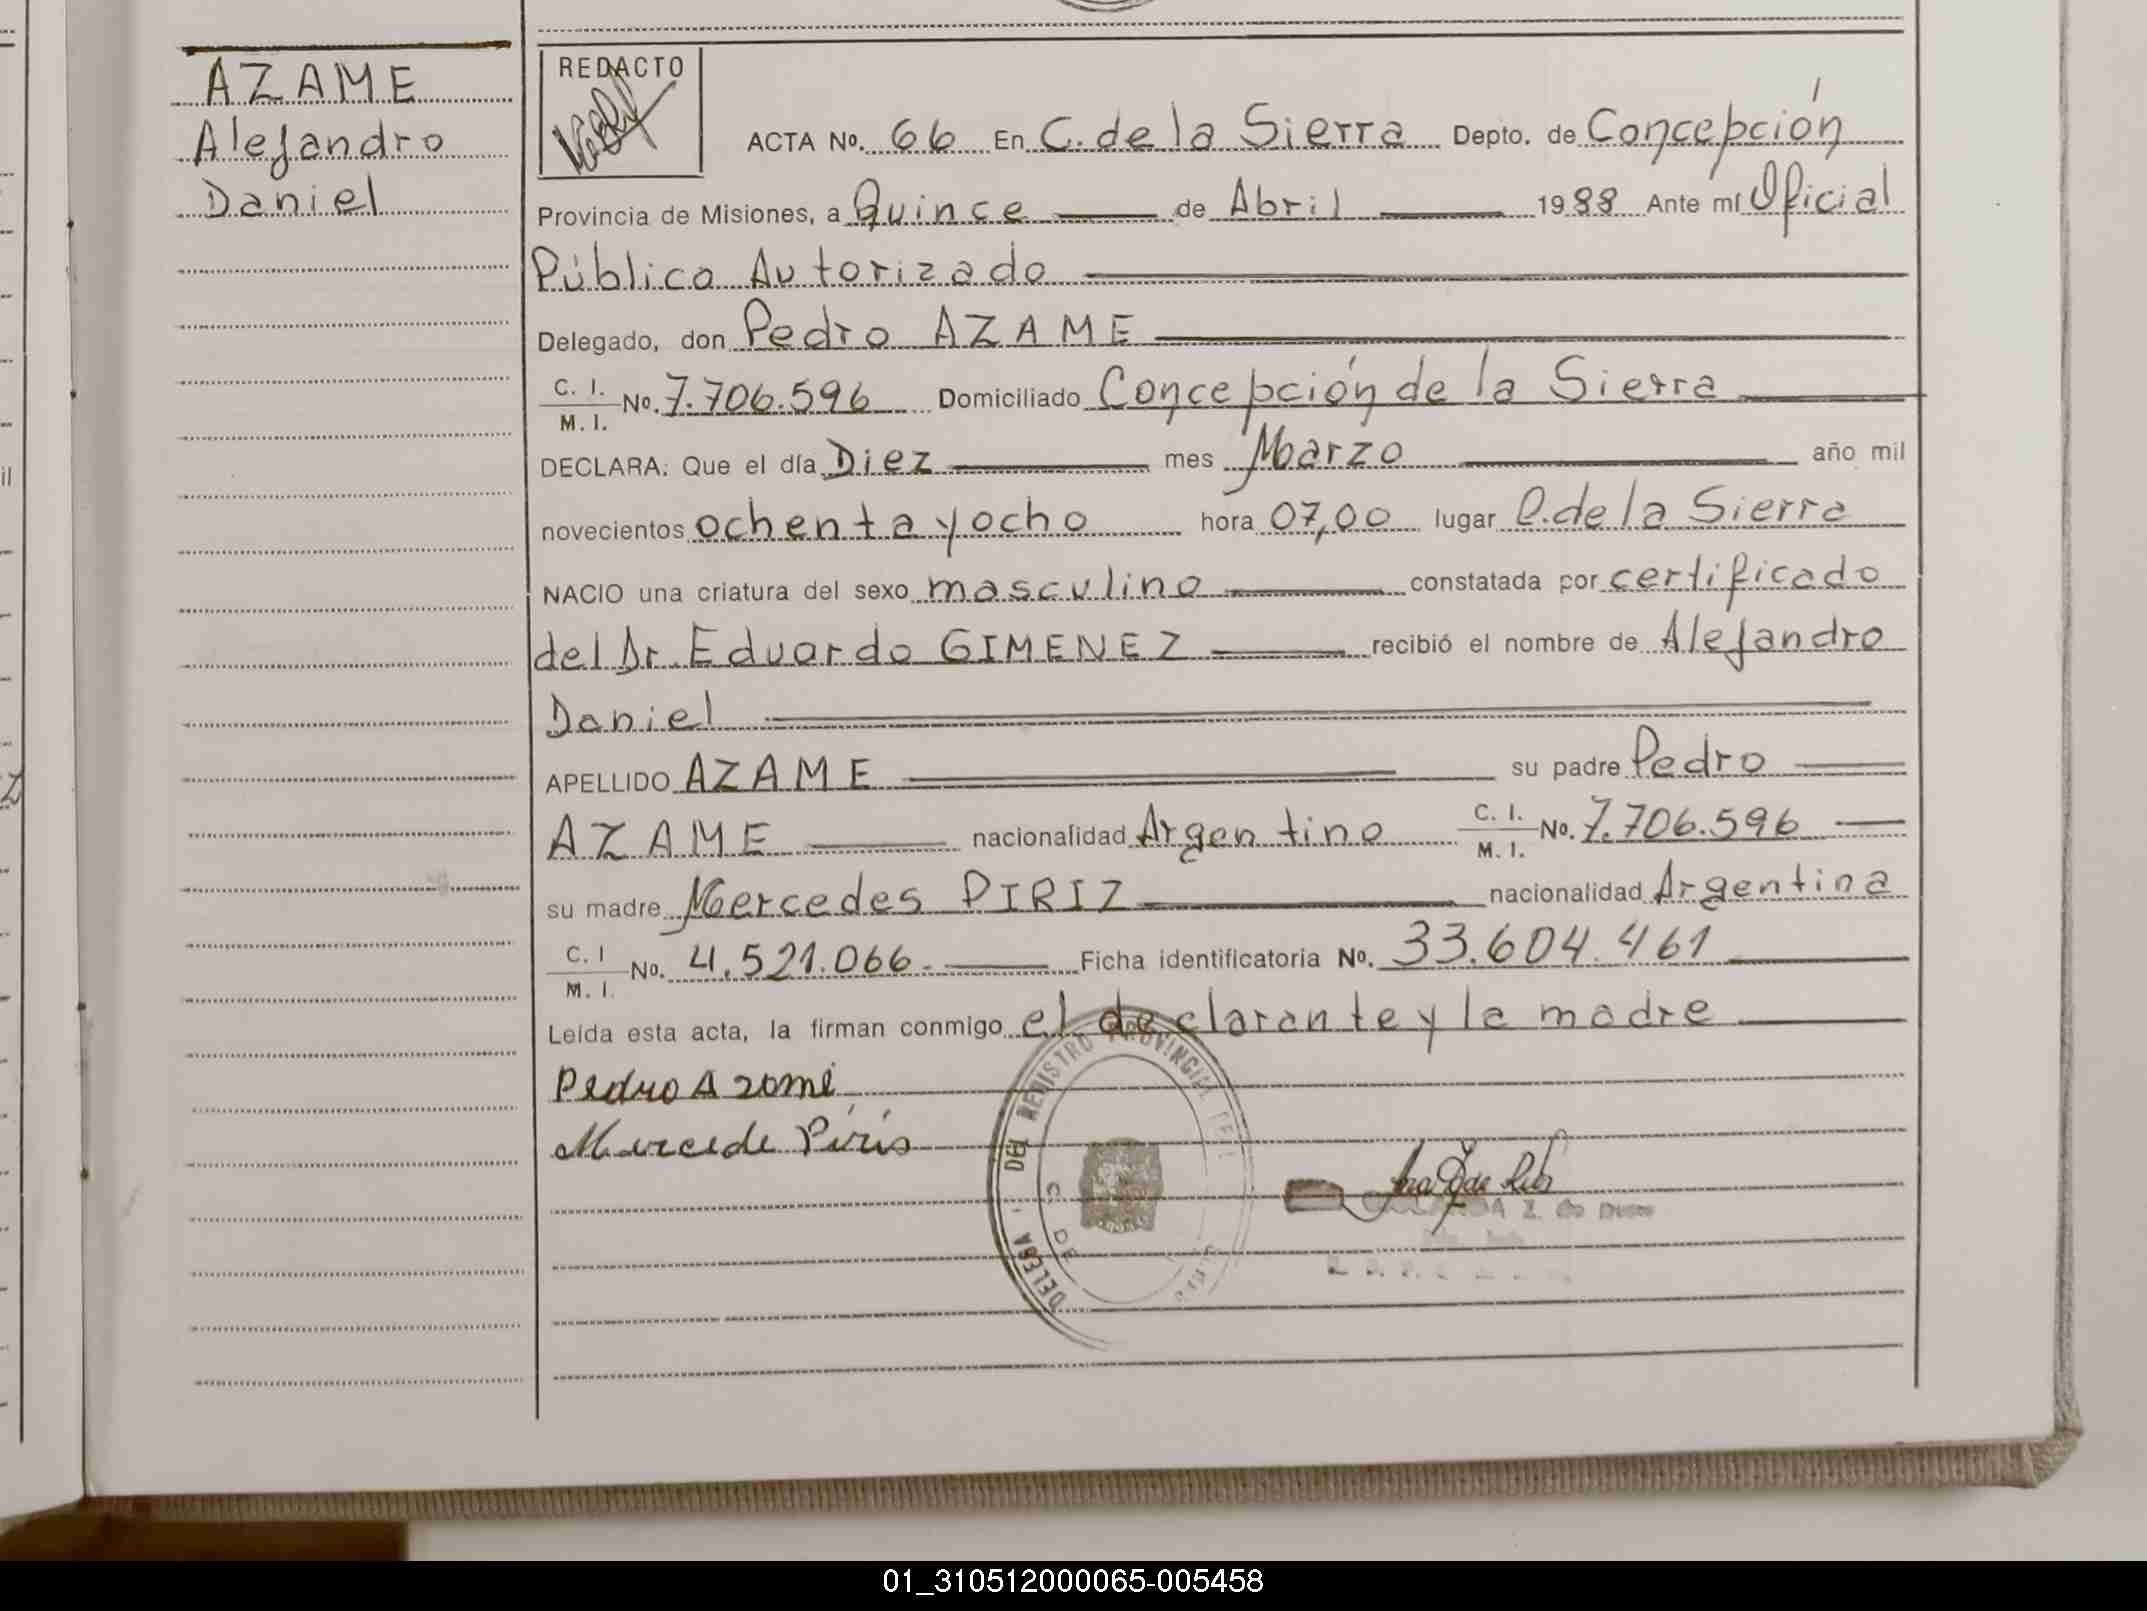 AZAME
Alejandro
Daniel
REDACTO
ACTA No. 66 En C. de la Sierra Depto. de Concepción
Provincia de Misiones, a Quince de Abril 1988 Ante mí Oficial
Público Autorizado
Delegado, don Pedro AZAME
C. I.
M. I. No. 7.706.596 Domiciliado Concepción de la Sierra
DECLARA: Que el día Diez mes Marzo año mil
novecientos ochenta y ocho hora 07,00 lugar C. de la Sierra
NACIO una criatura del sexo masculino constatada por certificado
del Dr. Eduardo GIMENEZ recibió el nombre de Alejandro
Daniel
APELLIDO AZAME su padre Pedro
AZAME nacionalidad Argentino C. I. M. I. No. 7.706.596
su madre Mercedes PIRIZ nacionalidad Argentina
C. I
M. I. No. 4.521.066. Ficha identificatoria No. 33.604.461
Leída esta acta, la firman conmigo el declarante y la madre
Pedro Azame
Mercede Piris
DEL REGISTRO PROVINCIAL DE
01_310512000065-005458